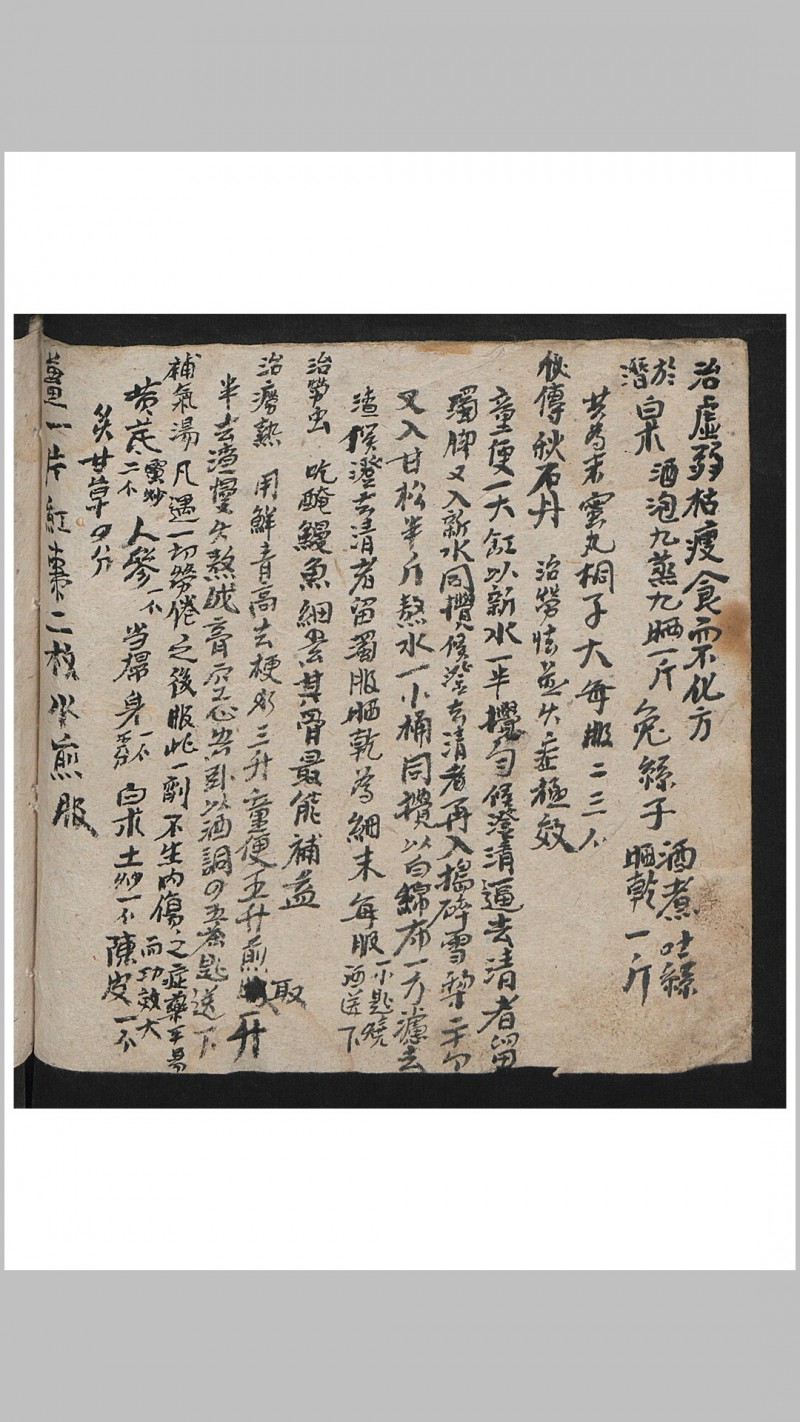 治虛弱枯瘦食而不化方
於潛白朮 酒泡九蒸九晒一斤 兔絲子 酒煮吐絲晒乾一斤
共為末蜜丸桐子大每服二三不
秘傳秋石丹 治勞怯並失血極效
童便一大缸以新水一半攪勻候澄清逼去清者留
濁脚又入新水同攪候澄去清者再入搗碎雪梨二十个
又入甘松半斤熬水一小桶同攪以白綿布一方濾去
渣候澄去清者留濁服晒乾為細末每服一小匙燒酒送下
治勞虫 吃醃鰻魚細嚼其骨最能補益
治癆熱 用鮮青高去梗 三升童便五升煎取一升
半去渣慢火熬成膏空心 以酒調四五茶匙送下
補氣湯 凡遇一切勞倦之後服此一劑不生內傷之症藥平易而功效大
黃芪蜜炒二不 人參一不 當歸身一不 白朮土炒一不 陳皮一不
炙甘草四分
薑一片紅棗二枚水煎服